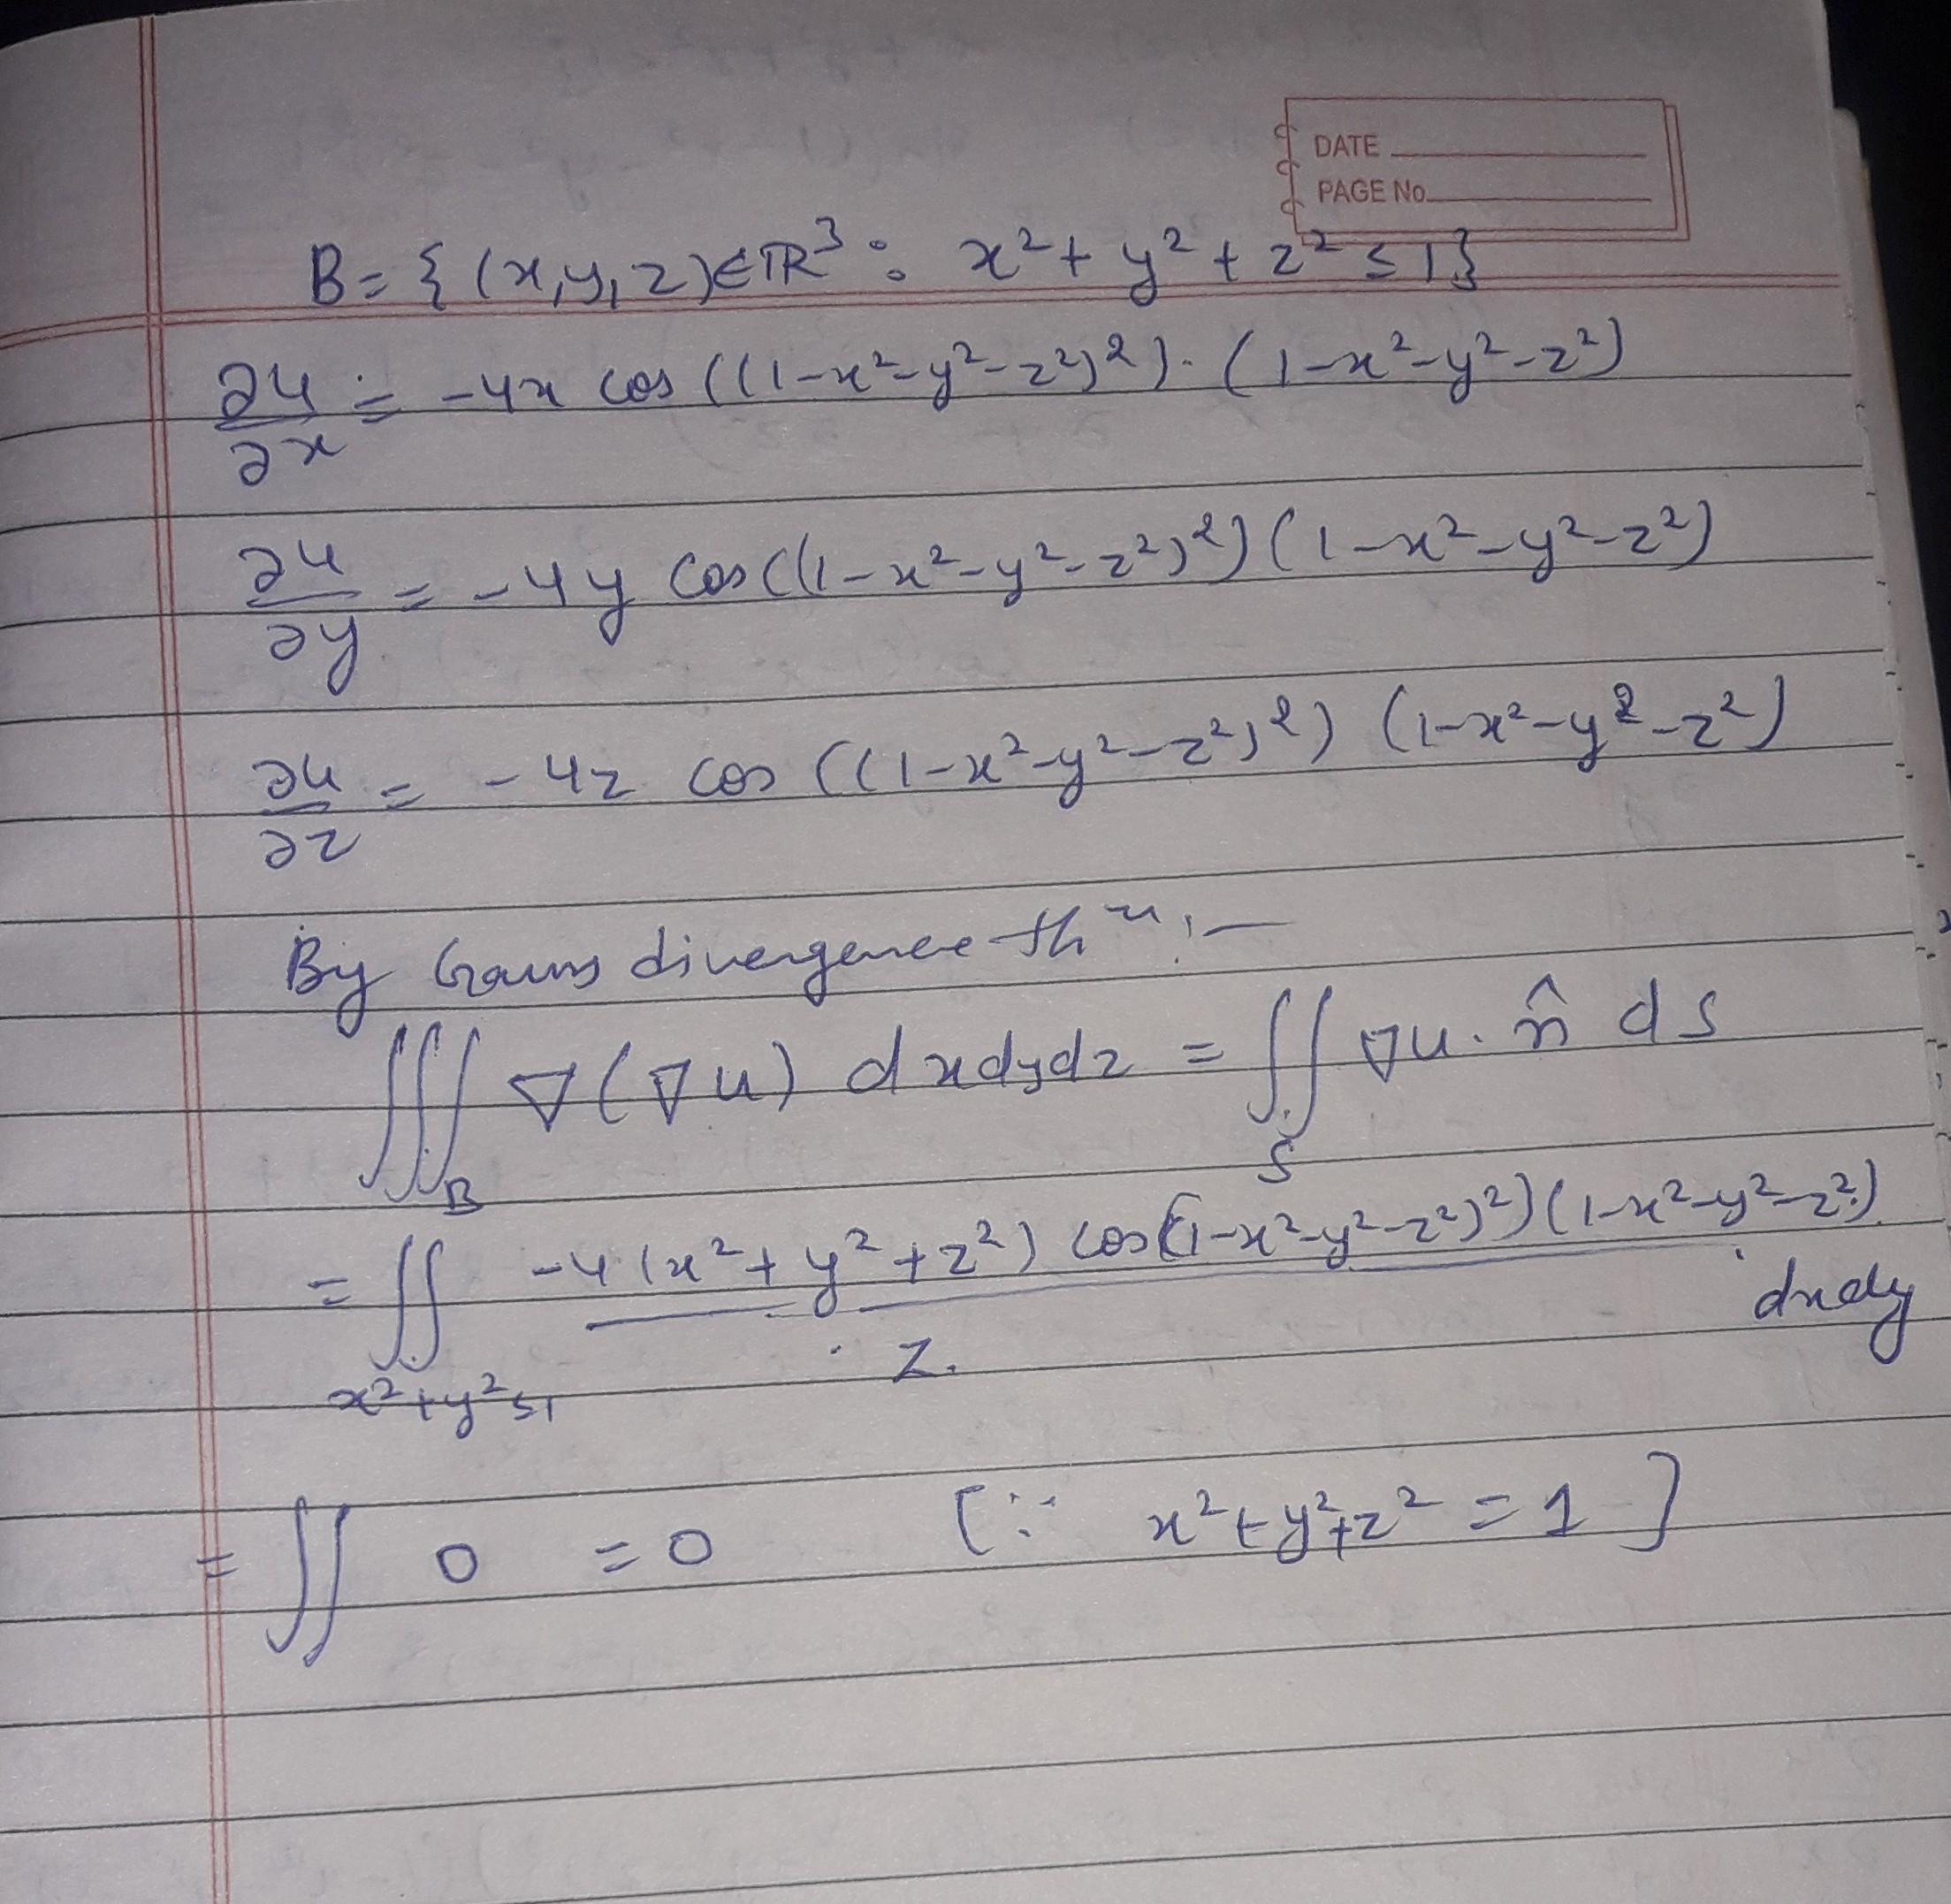 DATE
PAGE No.
B = { (x,y,z)∈ℝ³ : x² + y² + z² ≤ 1}
∂u/∂x = -4x cos ((1-x²-y²-z²)²). (1-x²-y²-z²)
∂u/∂y = -4y cos((1-x²-y²-z²)²) (1-x²-y²-z²)
∂u/∂z = -4z cos ((1-x²-y²-z²)²) (1-x²-y²-z²)
By Gauss divergence thᵐ :—
∭_B ∇(∇u) dxdydz = ∬_S ∇u. n̂ ds
= ∬_{x²+y²≤1} -4(x²+y²+z²) cos((1-x²-y²-z²)²)(1-x²-y²-z²) / z. dxdy
= ∬ 0 = 0 [∵ x²+y²+z² = 1 ]